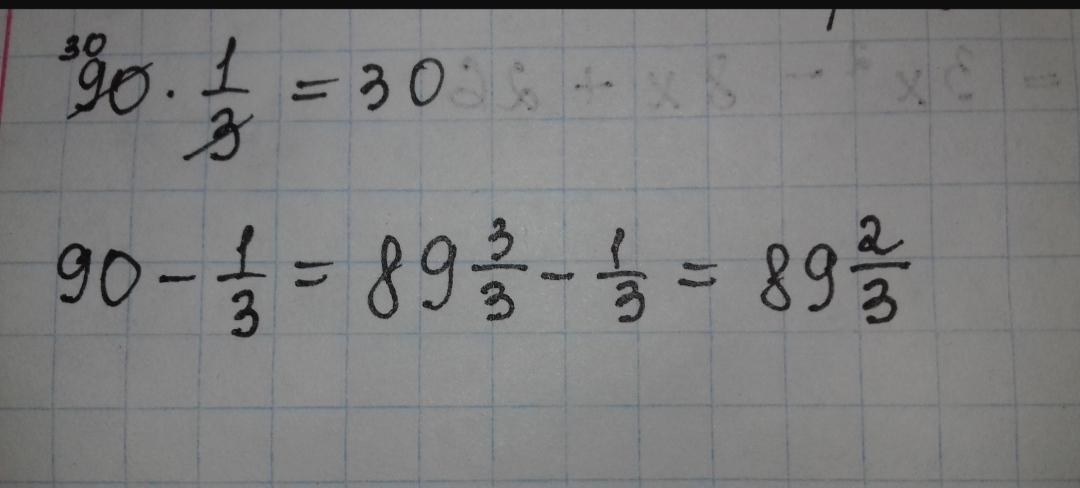 30
90 · 1/3 = 30
90 - 1/3 = 89 3/3 - 1/3 = 89 2/3